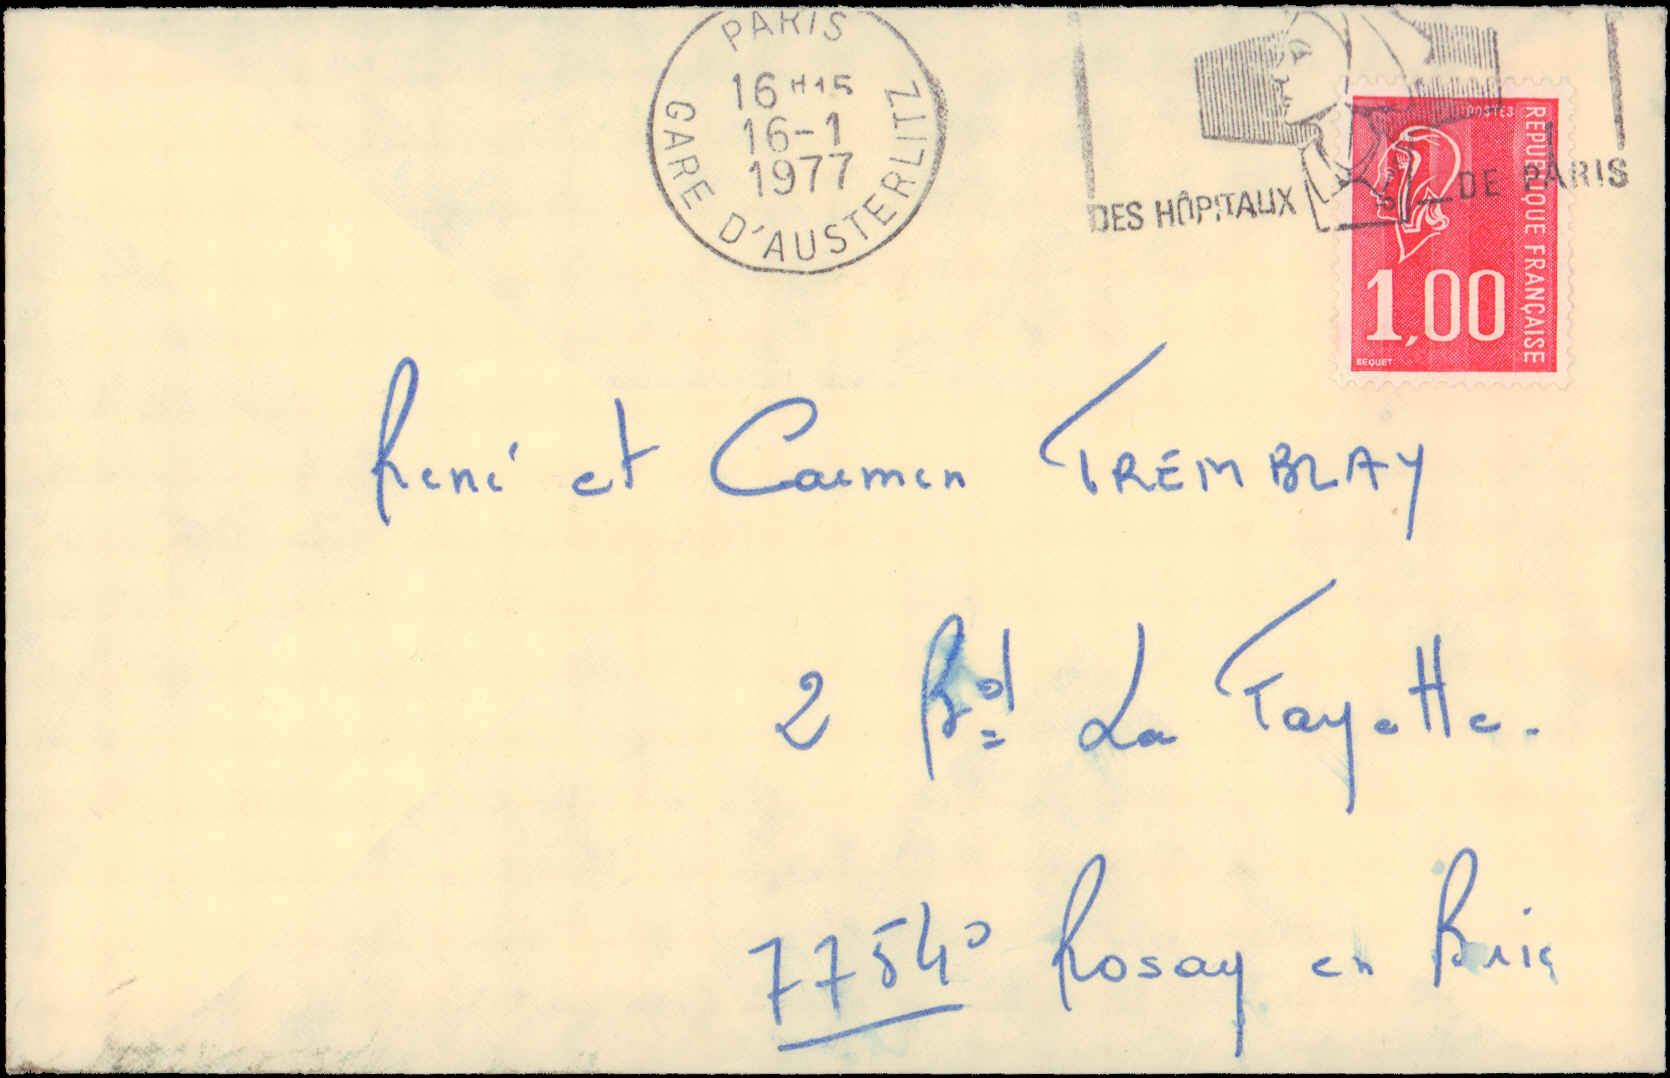 PARIS
16 H 15
16-1
1977
GARE D'AUSTERLITZ
DES HÔPITAUX DE PARIS
POSTES
REPUBLIQUE FRANÇAISE
1,00
BEQUET
René et Carmen TREMBLAY
2 Bd La Fayette.
77540 Rosay en Brie